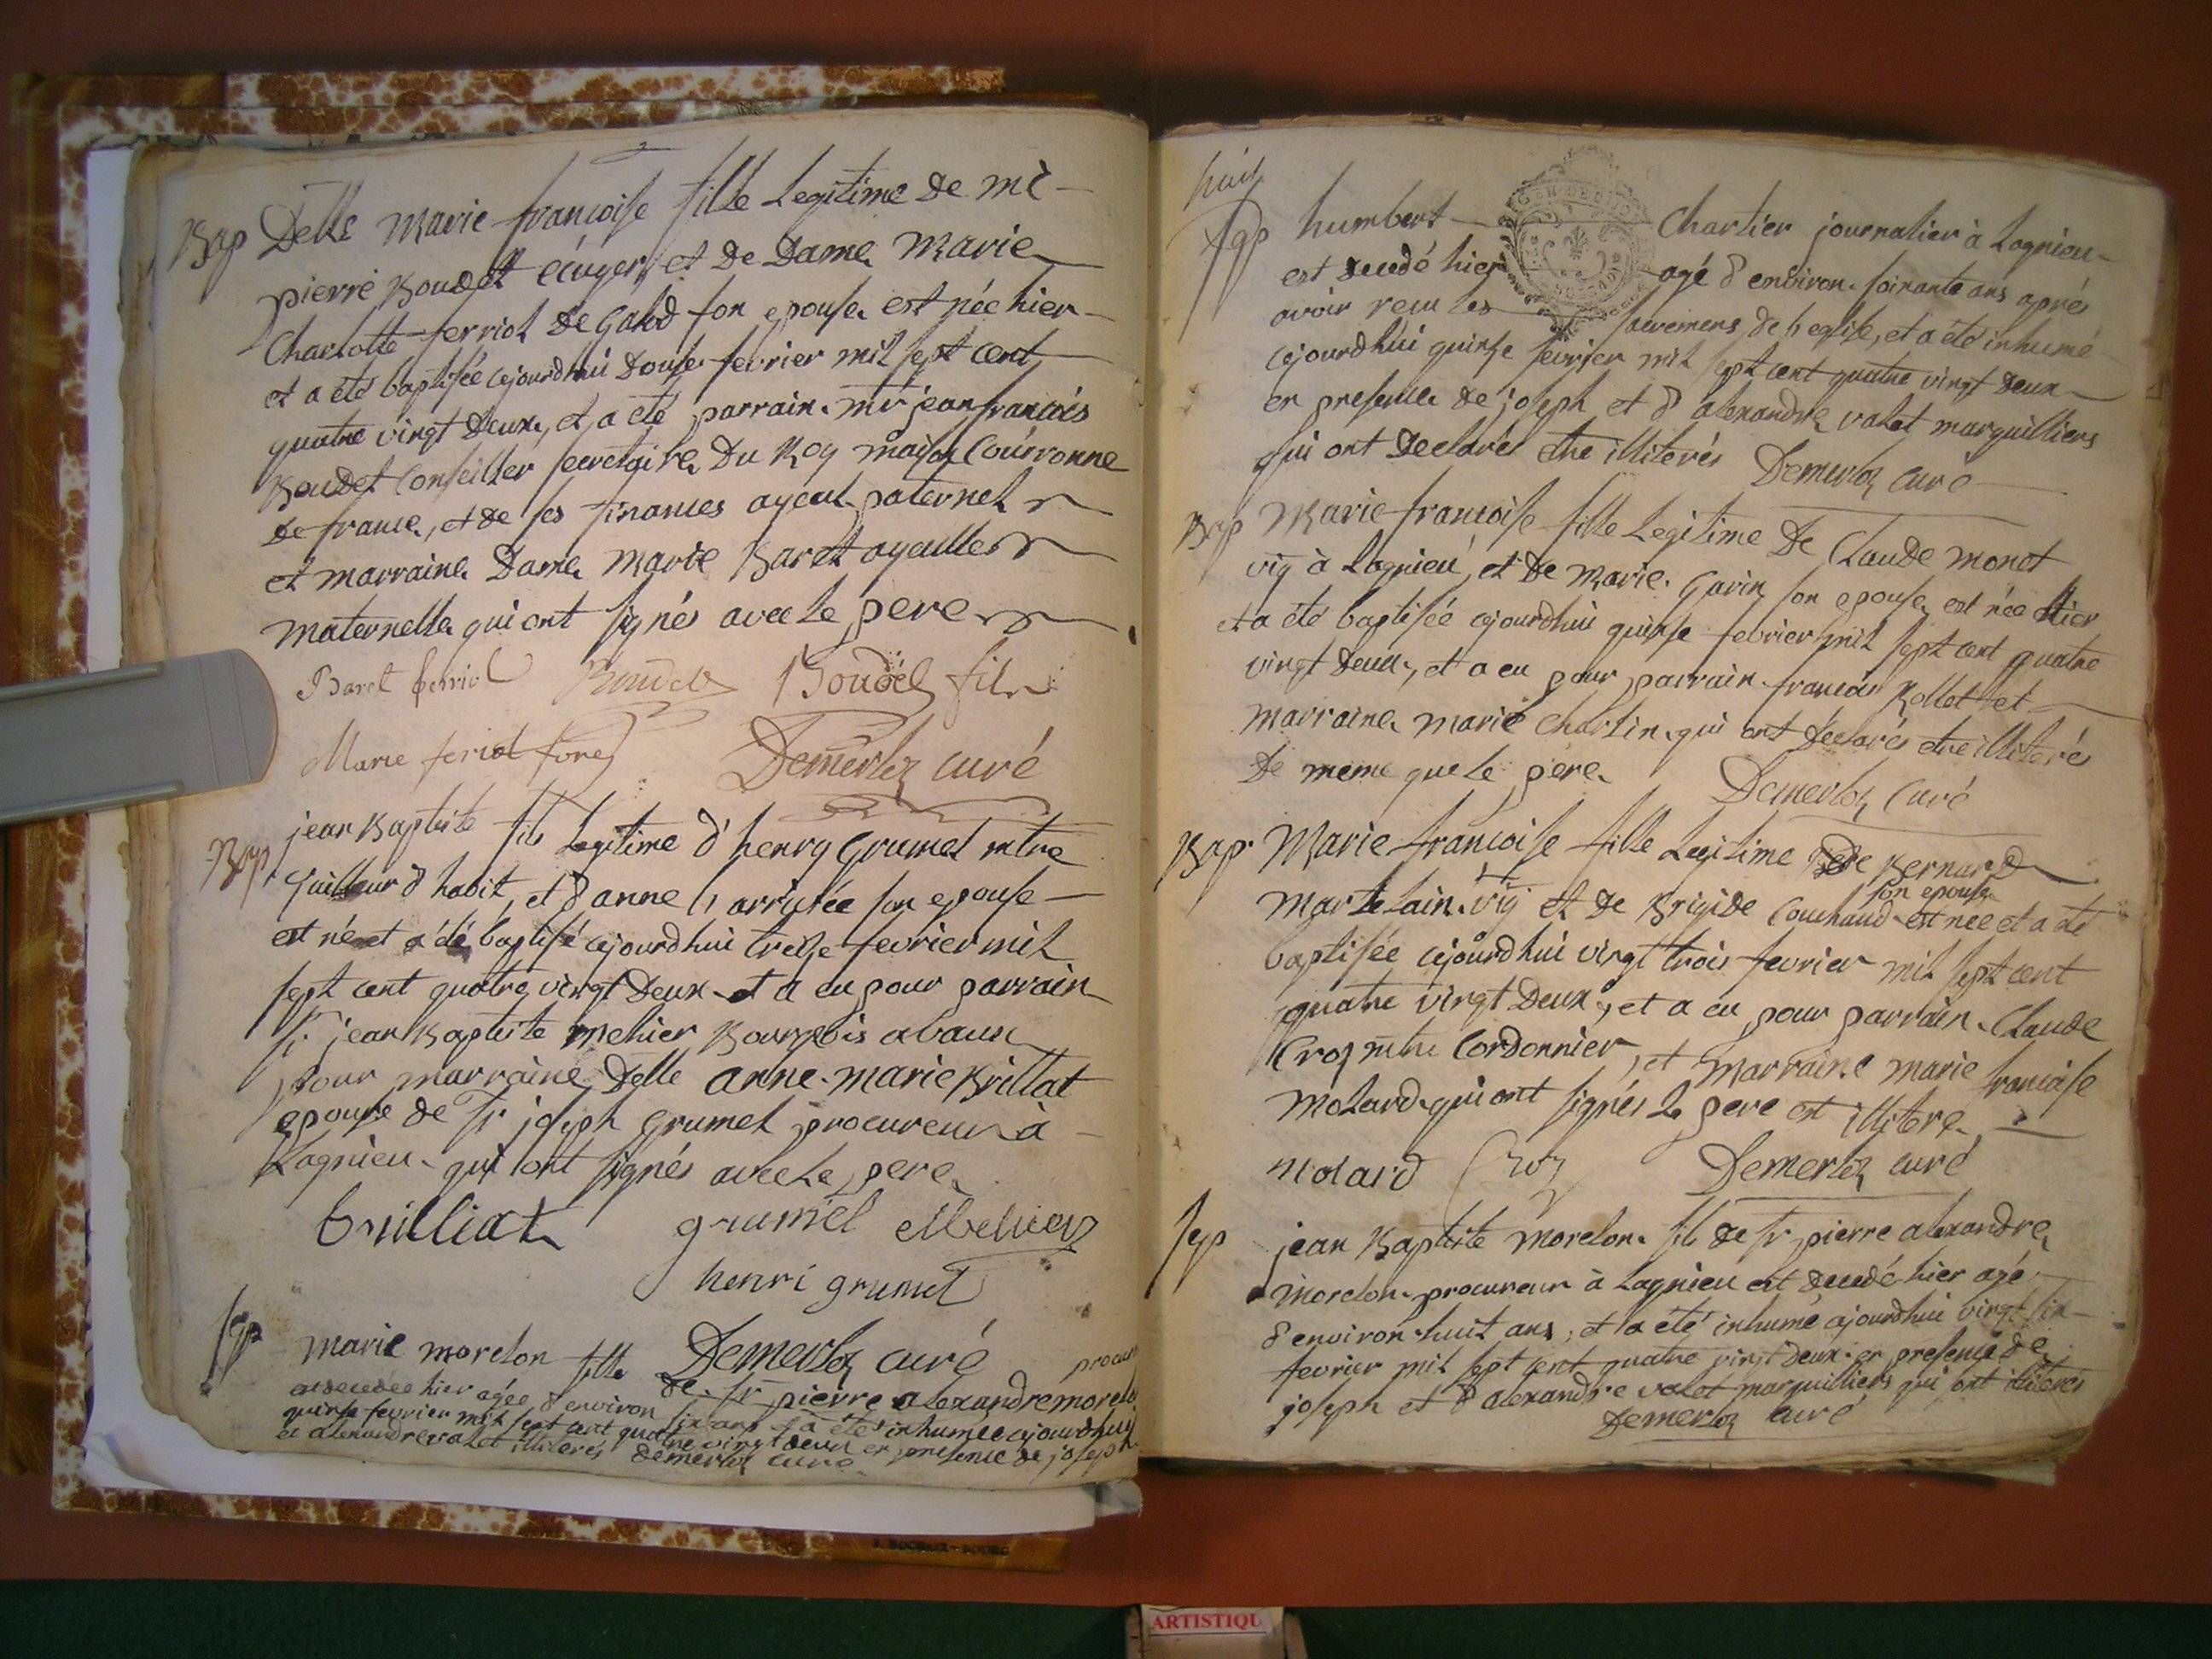 Bap Delle Marie françoise fille Legitime de mr
pierre Boudet ecuyer, et de Dame Marie
Charlotte ferriol de Galod son epouse est née hier
et a été baptisée cejourdhui douse fevrier mil sept cent
quatre vingt deux, et a eté parrain mr jean francois
Boudet Conseiller secretaire du Roy maison Courronne
de france, et de ses finances ayeul paternel
et marraine Dame Marie Baret ayeulle
maternelle qui ont signés avec le pere
Baret ferriol Boudet Boudet fils
Marie feriol Demerloz curé
Bap jean Baptiste fils Legitime d'henry Grumel mtre
tailleur d habit, et d anne son epouse
est né et a été baptisé cejourdhui treise fevrier mil
sept cent quatre vingt deux et a eu pour parrain
sr jean Baptiste mehier Bourgeois a baux
pour marraine Delle anne marie Brillat
epouse de sr joseph Grumel procureur à
Lagnieu qui ont signés avec le pere
Brilliat grumel Mehier
henri grumel
Demerloz curé
Sep marie morelon fille de sr pierre alexandre morelon procur
est decedee hier agée d environ six ans a été inhumée cejourdhuy
quinse fevrier mil sept cent quatre vingt deux en presence de joseph
et alexandre valet illiterés Demerloz curé
huit
Sep humbert Charlier journalier à Lagnieu
est decedé hier agé d environ soixante ans aprés
avoir reçu les sacremens de l eglise, et a été inhumé
cejourdhui quinse fevrier mil sept cent quatre vingt deux
en presence de joseph et d alexandre valet marguilliers
qui ont declarés etre illiterés Demerloz curé
Bap Marie francoise fille Legitime De Claude monet
vig à Lagnieu, et de marie Garin son epouse est née hier
et a été baptisée cejourdhui quinse fevrier mil sept cent quatre
vingt deux, et a eu pour parrain francois Rollet et
marraine marie Charlin qui ont declarés etre illiterés
de meme que le pere Demerloz Curé
Bap Marie francoise fille Legitime de Bernard
Martelain vig et de Brigide Couchaud son epouse est nee et a eté
baptisée cejourdhui vingt trois fevrier mil sept cent
quatre vingt deux, et a eu pour parrain Claude
Croz mtre Cordonnier, et marraine marie francoise
molard qui ont signés le pere est illitere
molard Croz Demerloz curé
Sep jean Baptiste morelon fils de sr pierre alexandre
morelon procureur à Lagnieu est decedé hier agé
d environ huit ans, et a été inhumé cejourdhui vingt six
fevrier mil sept cent quatre vingt deux en presence de
joseph et d alexandre valet marguilliers qui ont illiterés
Demerloz curé
ARTISTIQU